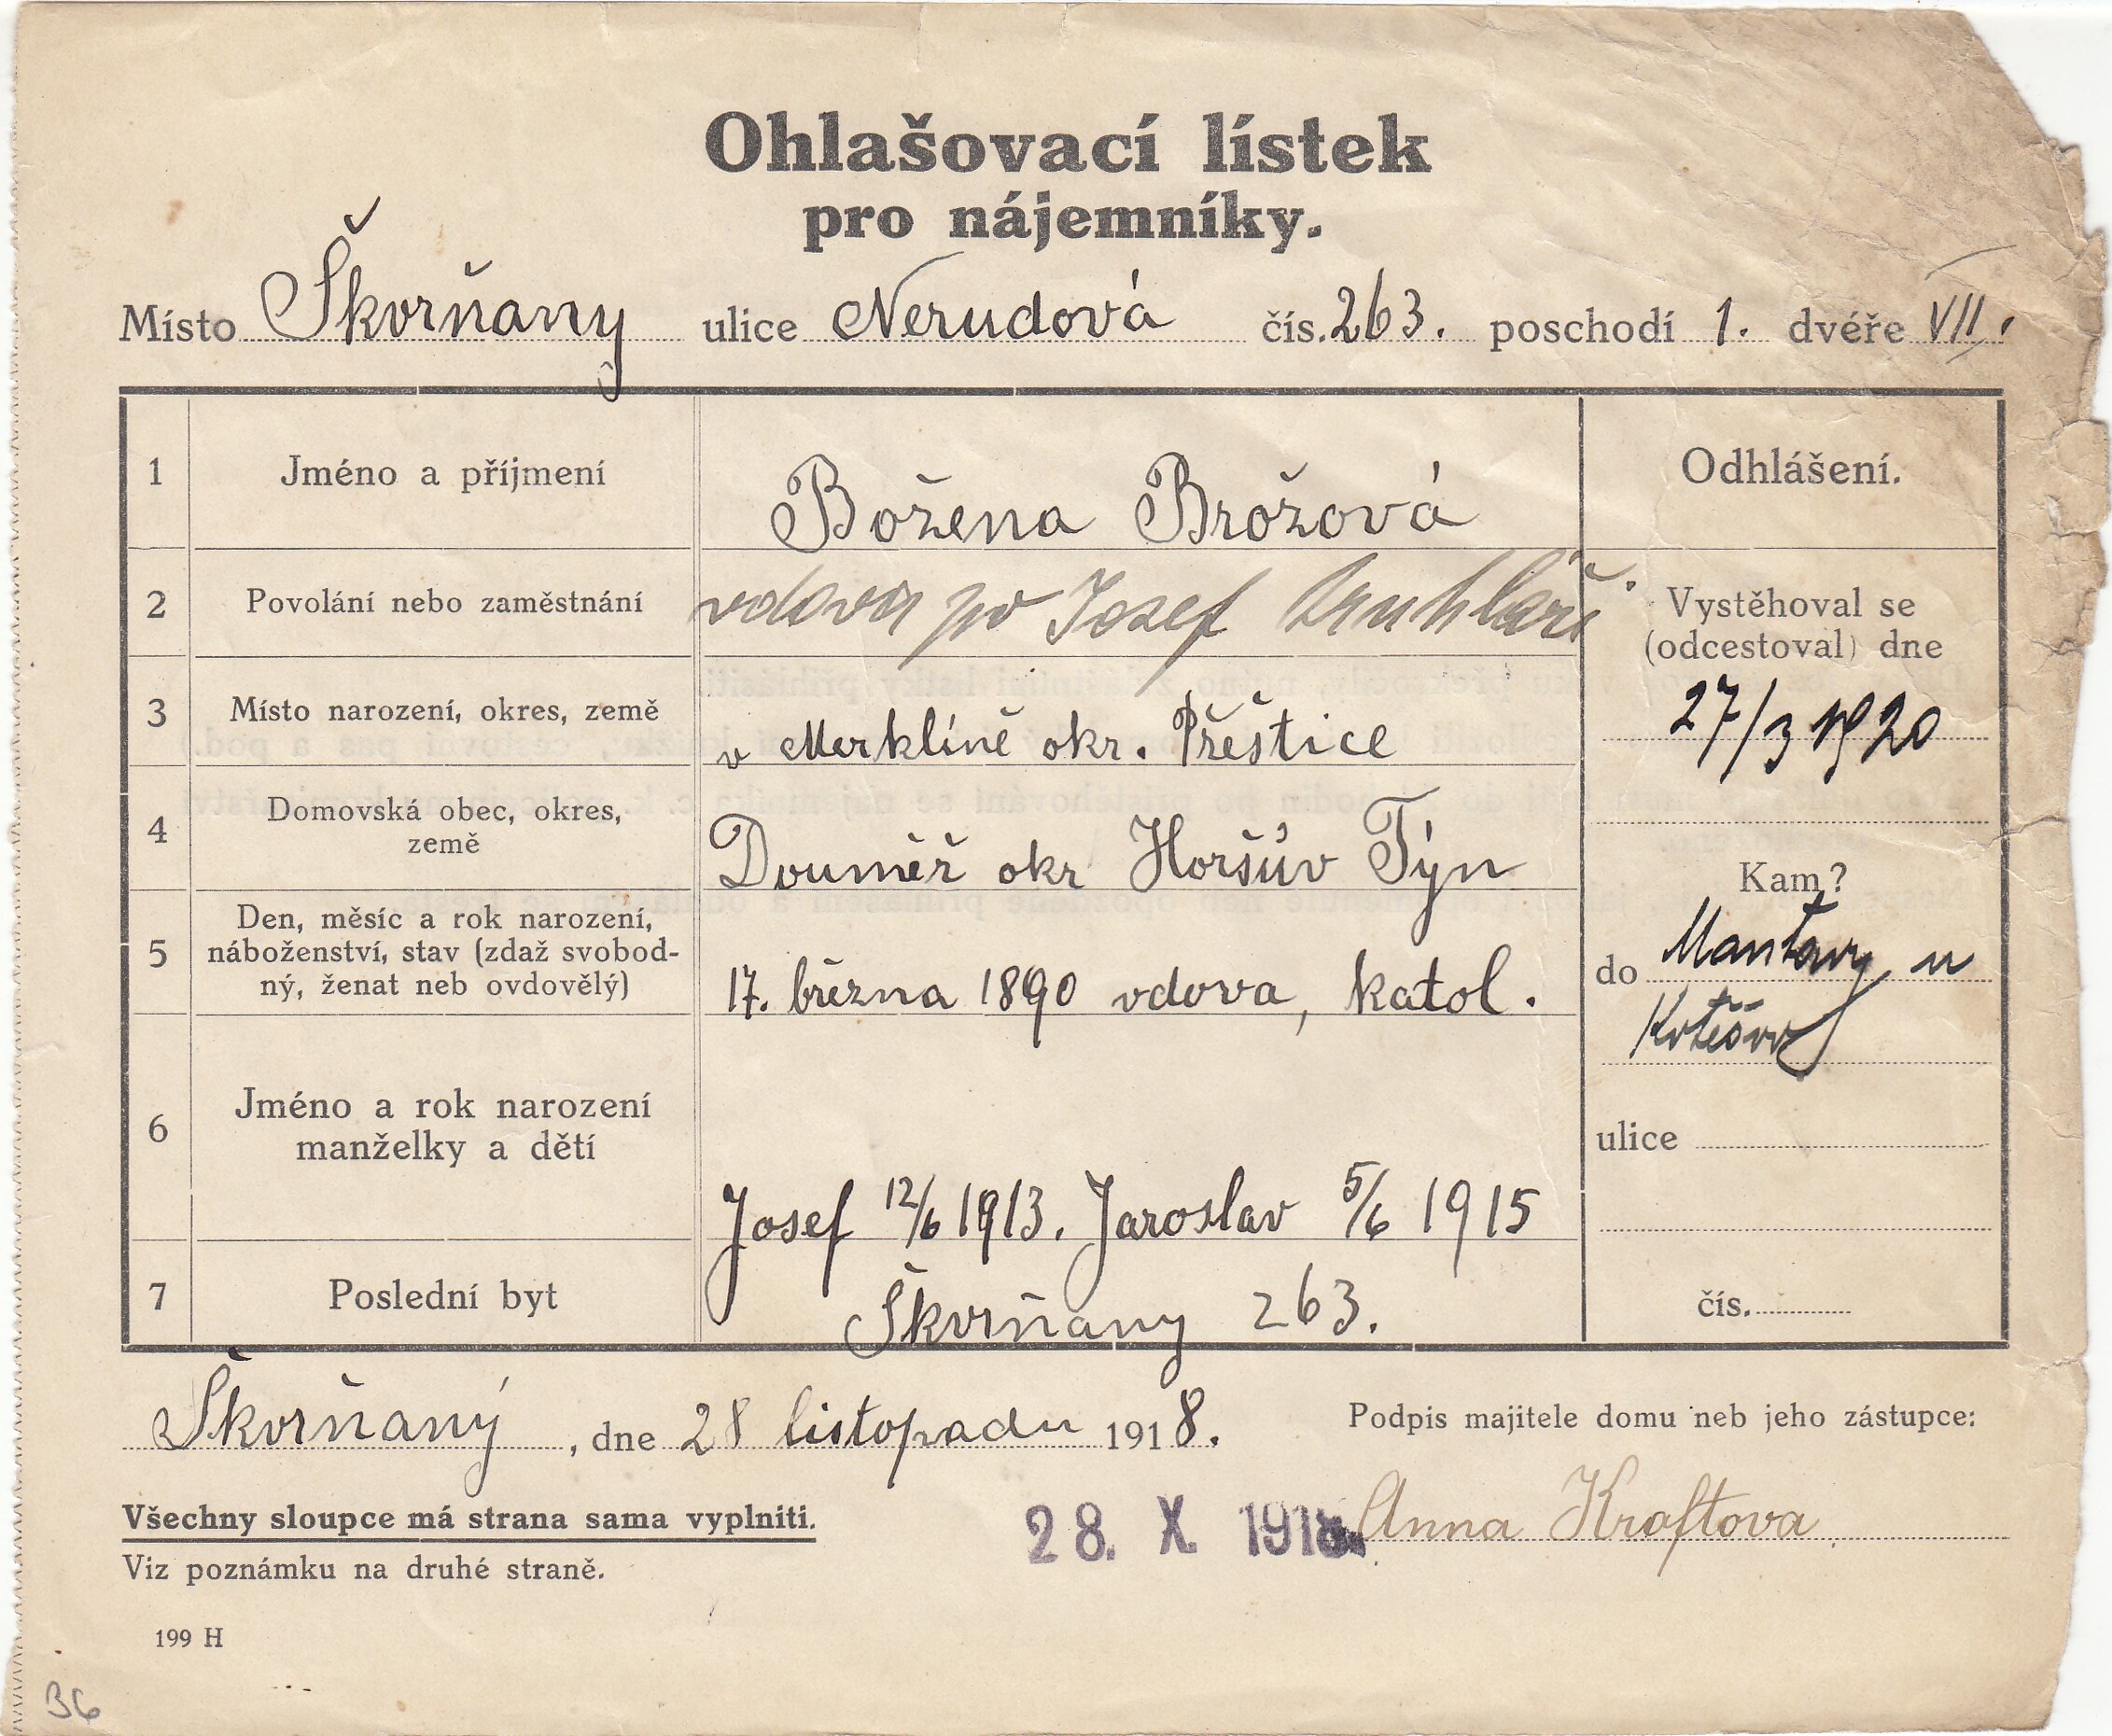 Ohlašovací lístek
pro nájemníky.
Místo Škvrňany ulice Nerudová čís. 263. poschodí 1. dvéře VII.
1 Jméno a příjmení Božena Brožová
2 Povolání nebo zaměstnání vdova po Josef truhláři
3 Místo narození, okres, země v Merklíně okr. Přěštice
4 Domovská obec, okres,
země Douměř okr Horšův Týn
5 Den, měsíc a rok narození,
náboženství, stav (zdaž svobod-
ný, ženat neb ovdovělý) 17. března 1890 vdova, katol.
6 Jméno a rok narození
manželky a dětí
Josef 12/6 1913. Jaroslav 5/6 1915
7 Poslední byt Škvrňany 263.
Odhlášení.
Vystěhoval se
(odcestoval) dne
27/3 1920
Kam?
do Mantovy u
ulice
čís.
Škvrňaný, dne 28 listopadu 1918.
Podpis majitele domu neb jeho zástupce:
Anna Kraftova
Všechny sloupce má strana sama vyplniti.
28. X 1918
Viz poznámku na druhé straně.
199 H
36